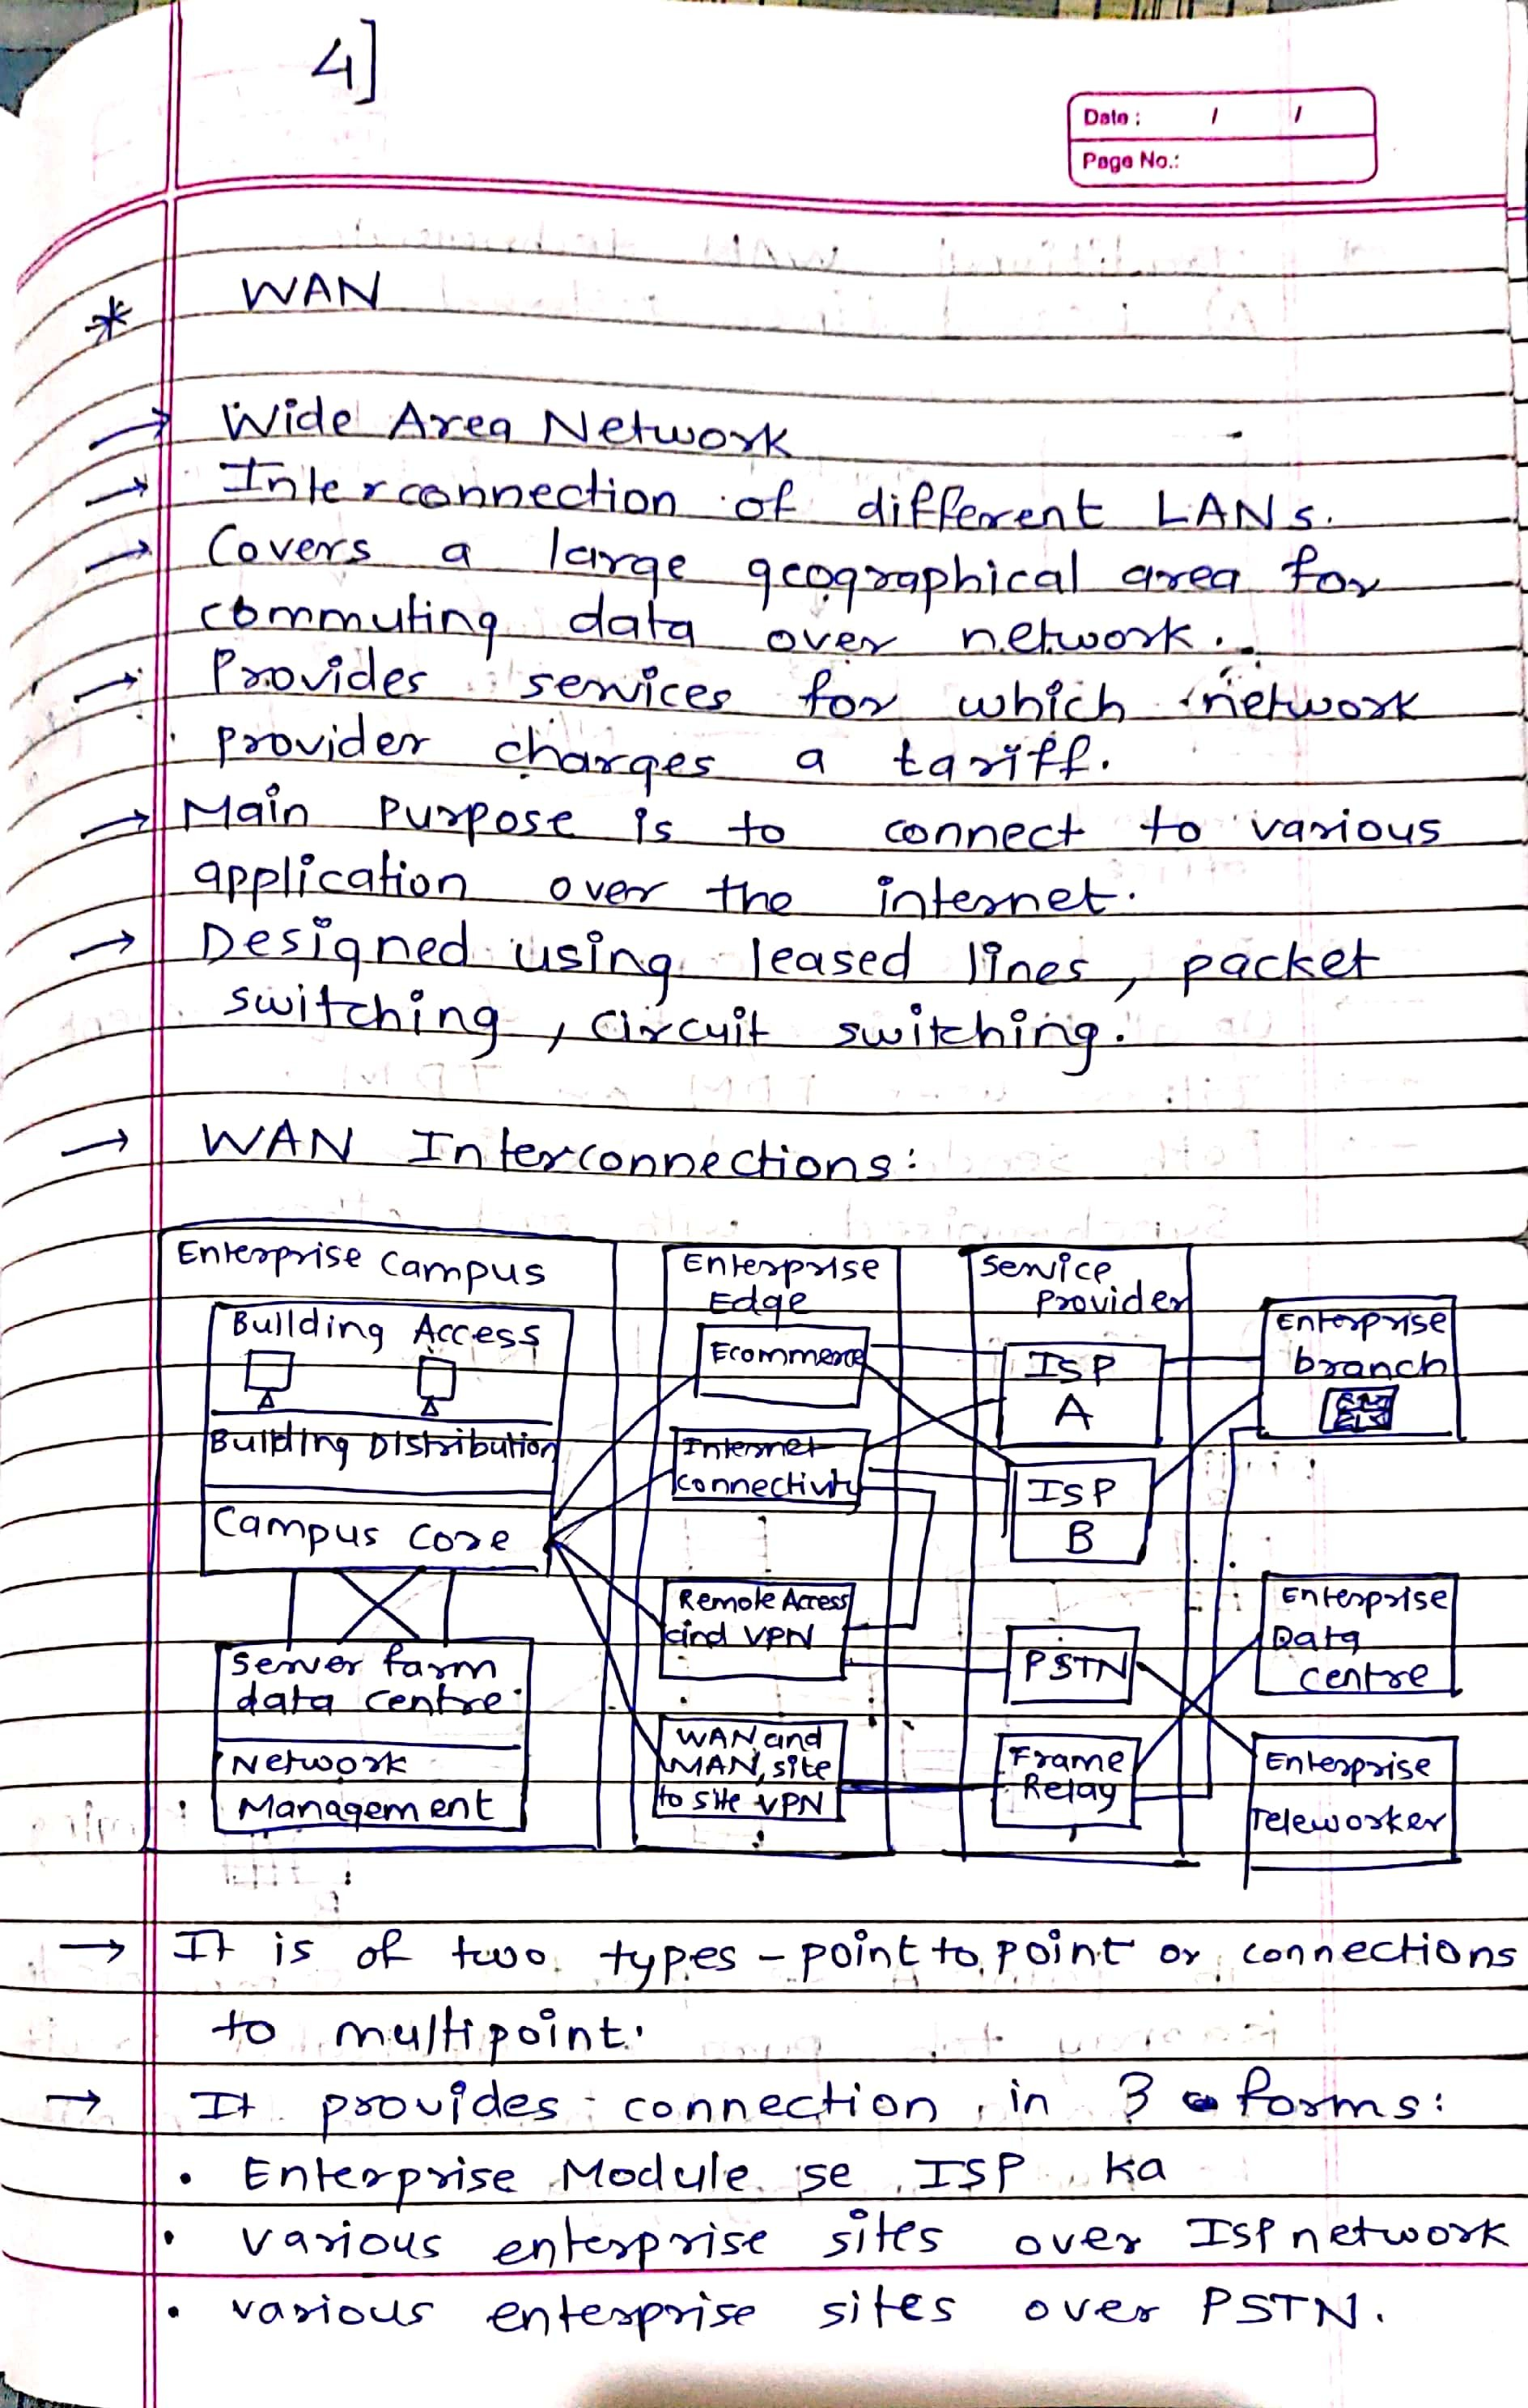 4]
Date : / /
Page No.:
* WAN
→ Wide Area Network
→ Interconnection of different LANs.
→ Covers a large geographical area for
commuting data over network.
→ Provides services for which network
provider charges a tariff.
→ Main purpose is to connect to various
application over the internet.
→ Designed using leased lines, packet
switching, circuit switching.
→ WAN Interconnections:
Enterprise Campus
Building Access
Building Distribution
Campus Core
Server farm
data centre
Network
Management
Enterprise
Edge
Ecommerce
Internet
connectivity
Remote Access
and VPN
WAN and
MAN, site
to site VPN
Service
Provider
ISP
A
ISP
B
PSTN
Frame
Relay
Enterprise
branch
Enterprise
Data
Centre
Enterprise
Teleworker
→ It is of two types - point to point or connections
to multipoint.
→ It provides connection in 3 forms:
• Enterprise Module se ISP ka
• various enterprise sites over ISP network
• various enterprise sites over PSTN.